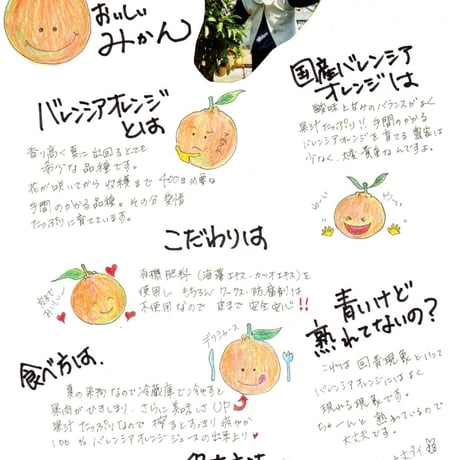 おいしい
みかん
バレンシアオレンジ
とは
香り高く夏に出回るとても
希少な品種です。
花が咲いてから収穫まで400日必要な
手間のかかる品種。その分愛情
たっぷりに育てています。
国産バレンシア
オレンジは
酸味と甘みのバランスがよく
果汁たっぷり!! 手間のかかる
バレンシアオレンジを育てる農家は
少なく、大変貴重なんですよ。
こだわりは
有機肥料(海藻エキス・カツオエキス)を
使用し もちろん ワックス・防腐剤は
不使用なので 皮まで安全安心!!
皮まで
おいしい
青いけど
熟れてないの?
これは回青現象といって
バレンシアオレンジにはよく
現れる現象です。
ちゃーんと熟れているので
大丈夫です。
食べ方は、
デリシャース
夏の果肉なので冷蔵庫で冷やすと
果肉がひきしまり、さらに美味しさUP
果汁たっぷりなので搾るとすっきり爽やか
100%バレンシアオレンジジュースの出来上り♥